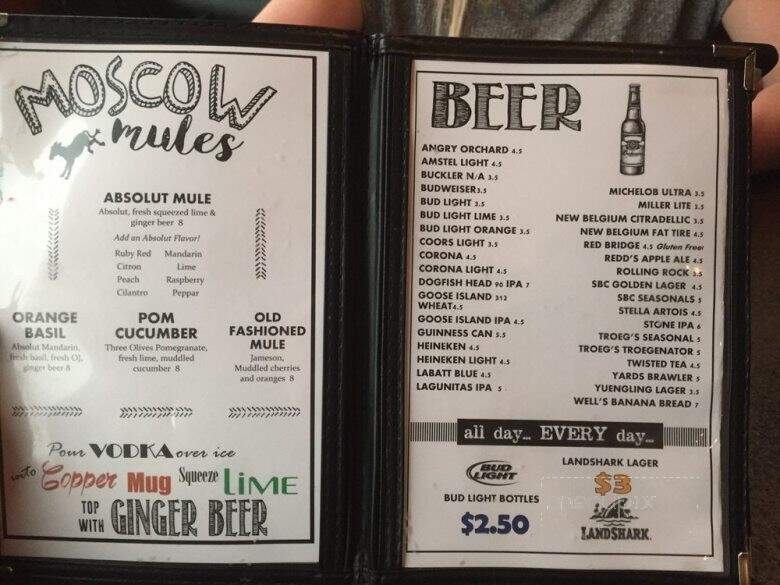 MOSCOW
mules
ABSOLUT MULE
Absolut, fresh squeezed lime &
ginger beer 8
Add an Absolut Flavor!
Ruby Red Mandarin
Citron Lime
Peach Raspberry
Cilantro Peppar
ORANGE
BASIL
Absolut Mandarin,
fresh basil, fresh OJ,
ginger beer 8
POM
CUCUMBER
Three Olives Pomegranate,
fresh lime, muddled
cucumber 8
OLD
FASHIONED
MULE
Jameson,
Muddled cherries
and oranges 8
Pour VODKA over ice
into Copper Mug Squeeze LIME
TOP
WITH GINGER BEER
BEER
ANGRY ORCHARD 4.5
AMSTEL LIGHT 4.5
BUCKLER N/A 3.5
BUDWEISER 3.5
BUD LIGHT 3.5
BUD LIGHT LIME 3.5
BUD LIGHT ORANGE 3.5
COORS LIGHT 3.5
CORONA 4.5
CORONA LIGHT 4.5
DOGFISH HEAD 90 IPA 7
GOOSE ISLAND 312
WHEAT 4.5
GOOSE ISLAND IPA 4.5
GUINNESS CAN 5.5
HEINEKEN 4.5
HEINEKEN LIGHT 4.5
LABATT BLUE 4.5
LAGUNITAS IPA 5
MICHELOB ULTRA 3.5
MILLER LITE 3.5
NEW BELGIUM CITRADELLIC 3.5
NEW BELGIUM FAT TIRE 4.5
RED BRIDGE 4.5 Gluten Free!
REDD'S APPLE ALE 4.5
ROLLING ROCK 3.5
SBC GOLDEN LAGER 4.5
SBC SEASONALS 5
STELLA ARTOIS 4.5
STONE IPA 6
TROEG'S SEASONAL 5
TROEG'S TROEGENATOR 5
TWISTED TEA 4.5
YARDS BRAWLER 5
YUENGLING LAGER 3.5
WELL'S BANANA BREAD 7
all day... EVERY day...
BUD
LIGHT
BUD LIGHT BOTTLES
$2.50
LANDSHARK LAGER
$3
LANDSHARK